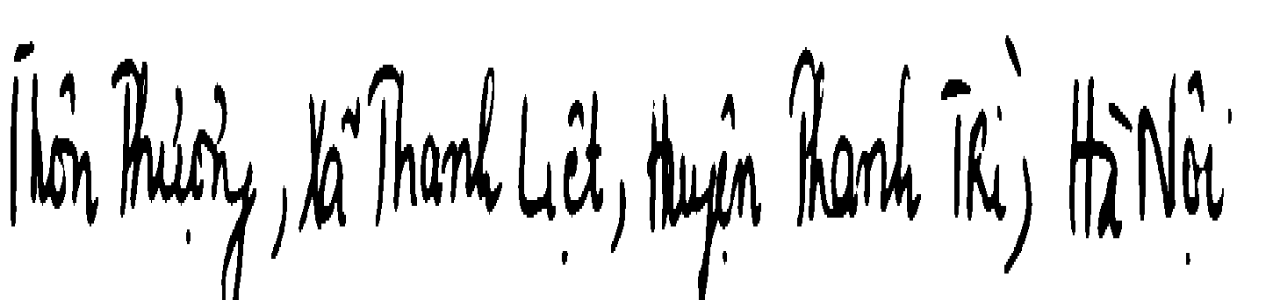 Thôn Phượng, Xã Thanh Liệt, Huyện Thanh Trì, Hà Nội